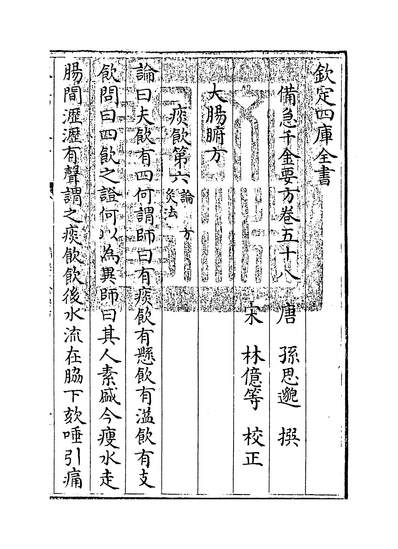 欽定四庫全書
備急千金要方卷五十八　唐　孫思邈　撰
宋　林億等　校正
大腸腑方
痰飲第六 論 方 灸法
論曰夫飲有四何謂師曰有痰飲有懸飲有溢飲有支
飲問曰四飲之證何以為異師曰其人素盛今瘦水走
腸間瀝瀝有聲謂之痰飲飲後水流在脇下欬唾引痛